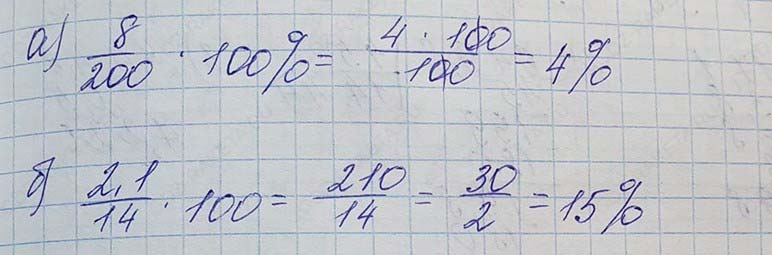 а) 8/200 · 100% = 4 · 100/100 = 4%
б) 2,1/14 · 100 = 210/14 = 30/2 = 15%